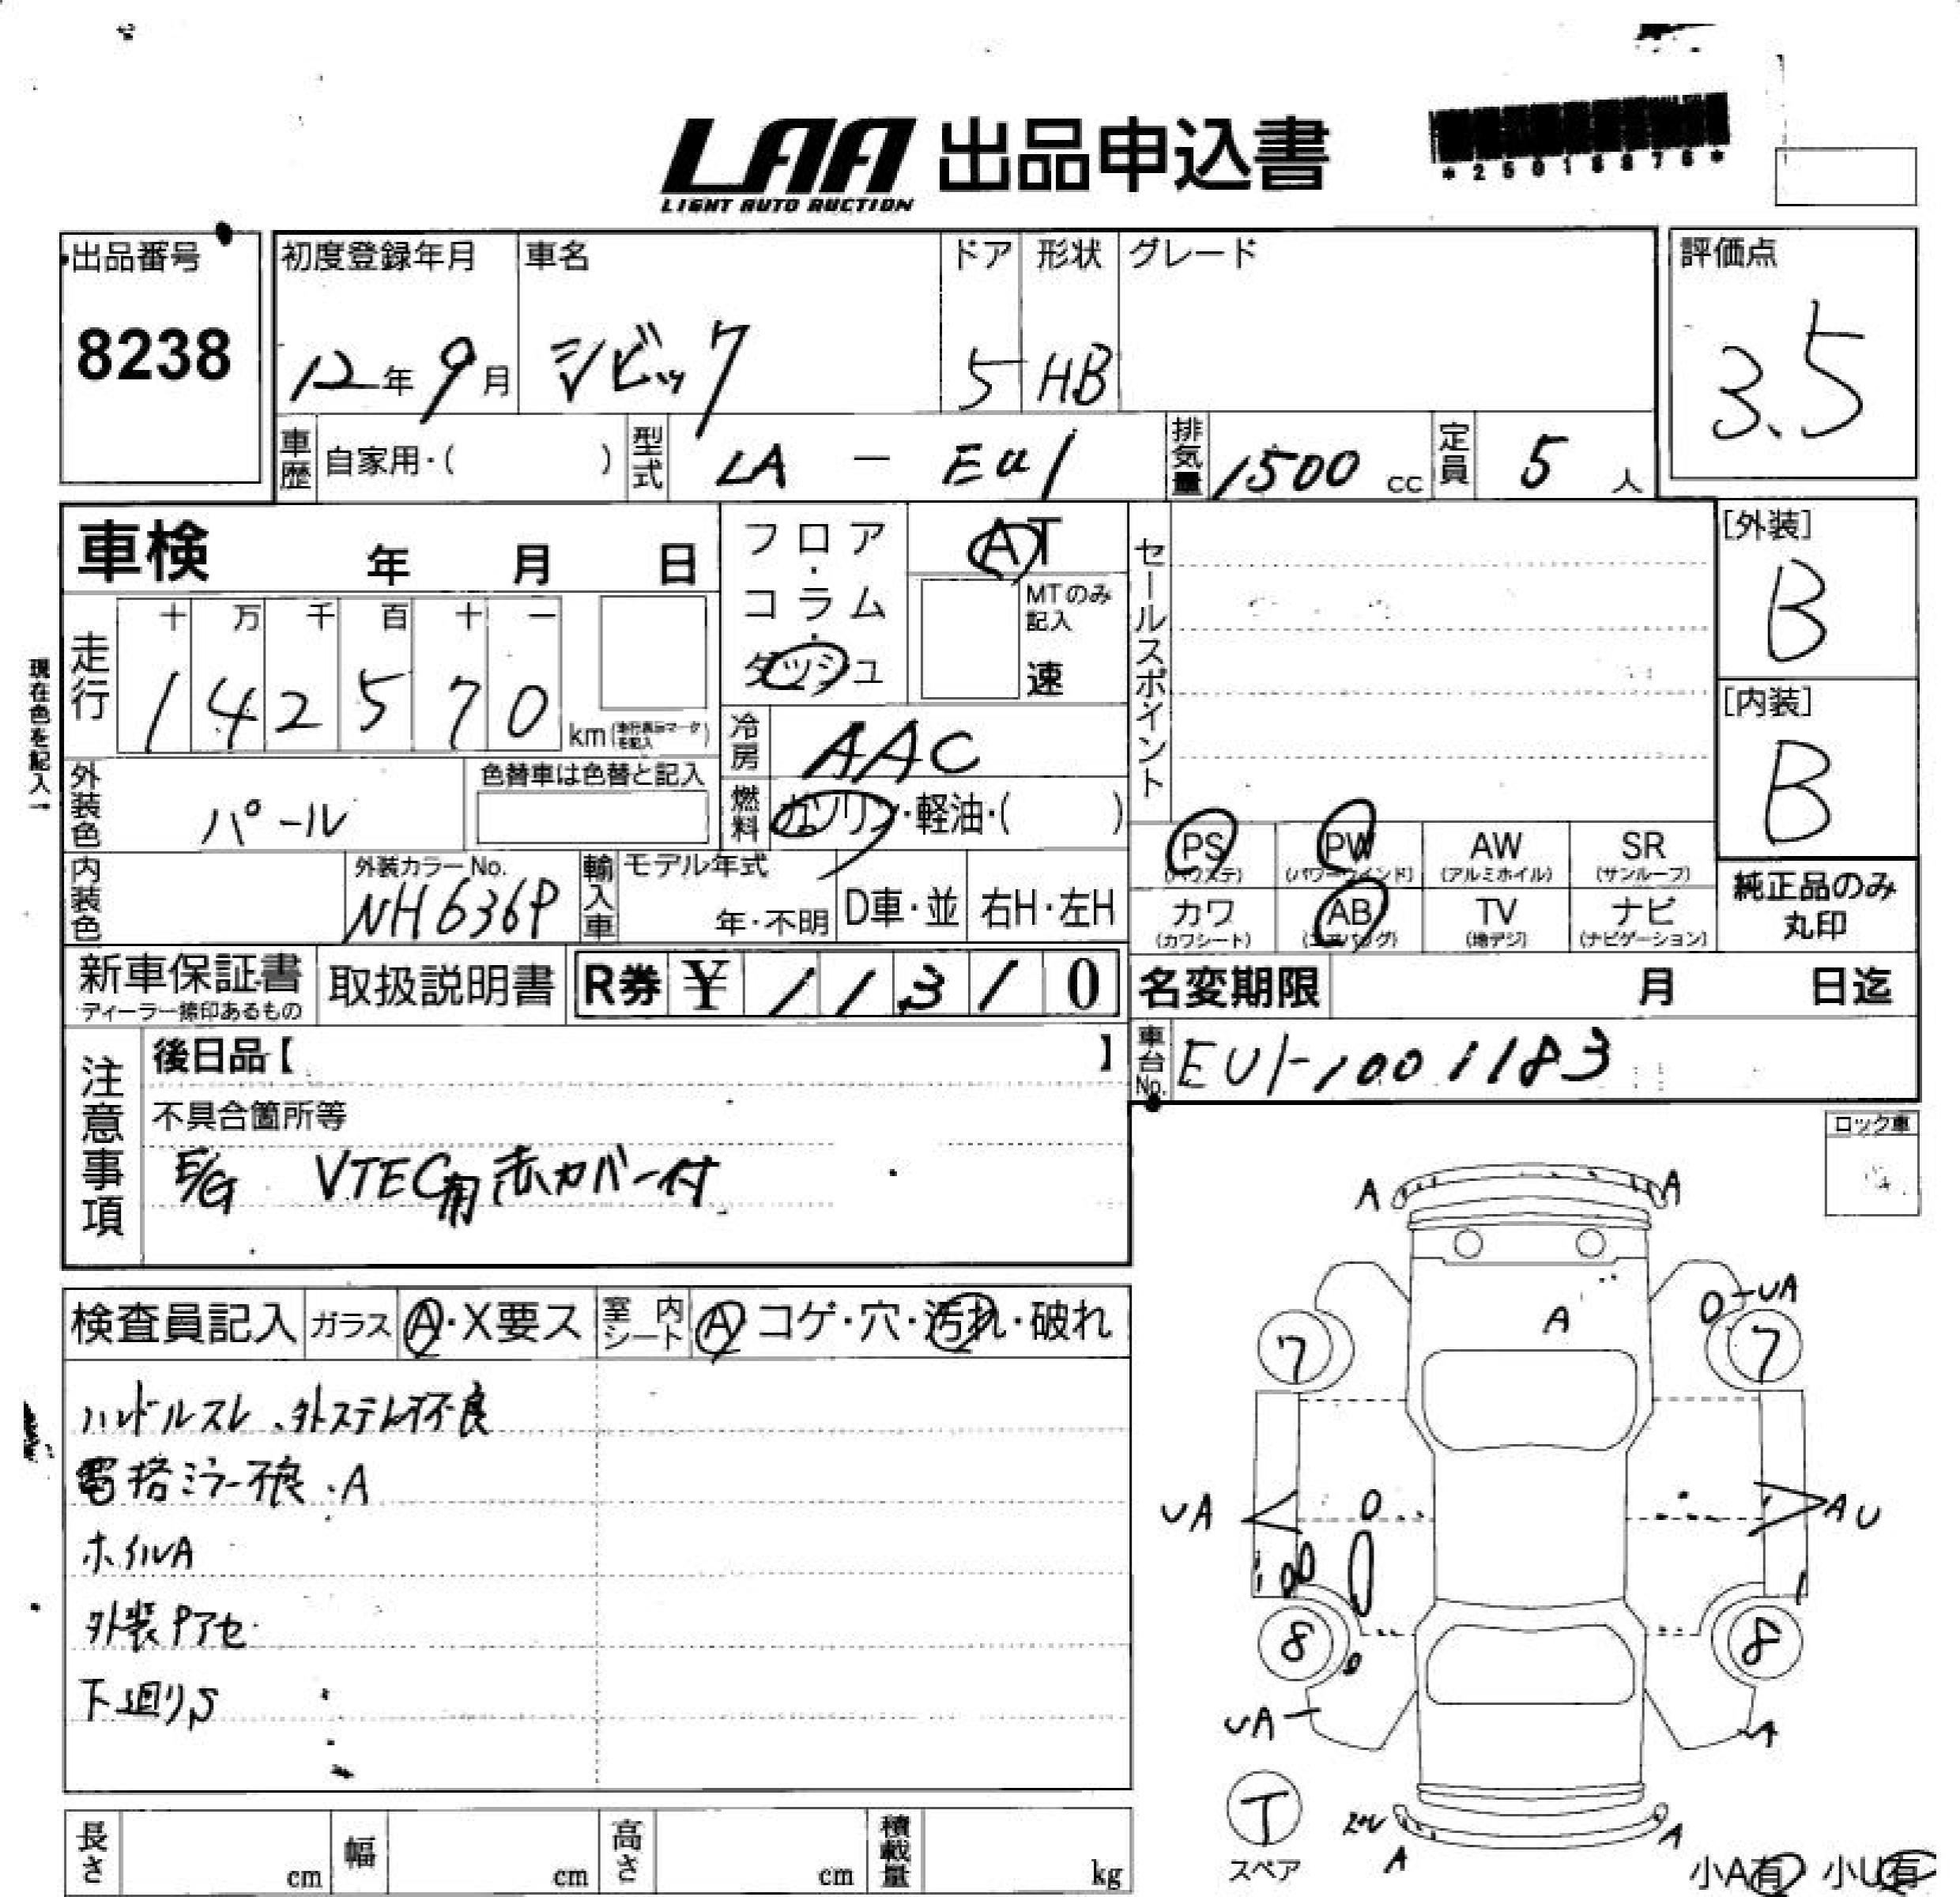 LAA 出品申込書
LIGHT AUTO AUCTION
出品番号
8238
初度登録年月
12年9月
車名
シビック
ドア
5
形状
HB
グレード
評価点
3.5
車歴 自家用・( )
型式 LA - EU1
排気量 1500 cc
定員 5 人
車検 年 月 日
フロア・コラム・ダッシュ
AT
MTのみ記入
速
セールスポイント
[外装]
B
[内装]
B
現在色を記入→
走行 十 万 千 百 十 一
1 4 2 5 7 0 km
冷房 AAC
外装色 パール
色替車は色替と記入
燃料 ガソリン・軽油・( )
PS (パワステ)
PW (パワーウインド)
AW (アルミホイル)
SR (サンルーフ)
カワ (カワシート)
AB (エアバッグ)
TV (地デジ)
ナビ (ナビゲーション)
純正品のみ丸印
内装色
外装カラーNo.
NH636P
輸入車
モデル年式
年・不明
D車・並
右H・左H
新車保証書
ディーラー捺印あるもの
取扱説明書
R券 ¥ 1 1 3 1 0
名変期限 月 日迄
車台No. EU1-1001183
注意事項
後日品【 】
不具合箇所等
E/G VTEC用赤カバー付
ロック車
検査員記入
ガラス A・X要ス
室内シート A コゲ・穴・汚れ・破れ
ハンドルスレ、外ステレオ不良
電格ミラー不良・A
ホイルA
外装Pアセ
下廻りS
A
A
A
O-UA
7
7
UA
AU
8
8
UA
A
T
スペア
A
A
小A有
小U有
長さ cm
幅 cm
高さ cm
積載量 kg